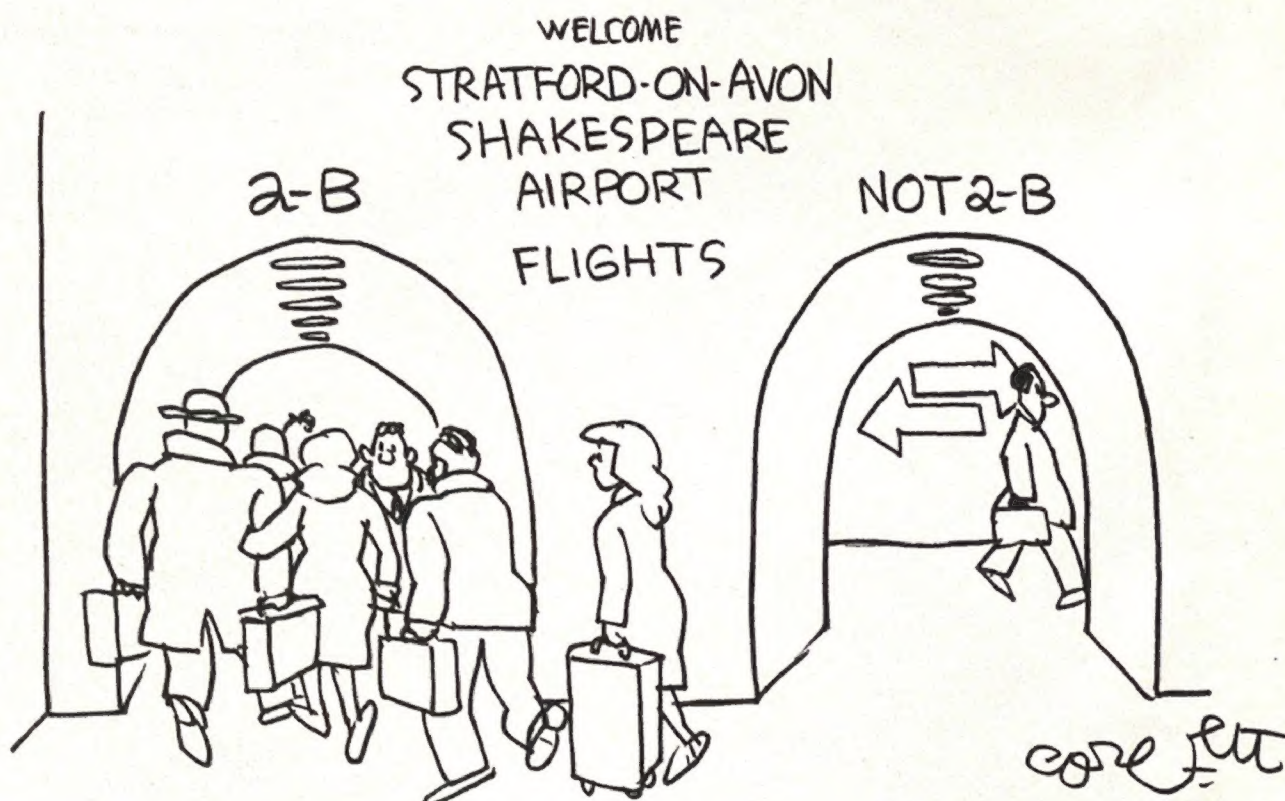 WELCOME
STRATFORD-ON-AVON
SHAKESPEARE
AIRPORT
FLIGHTS
2-B
NOT 2-B